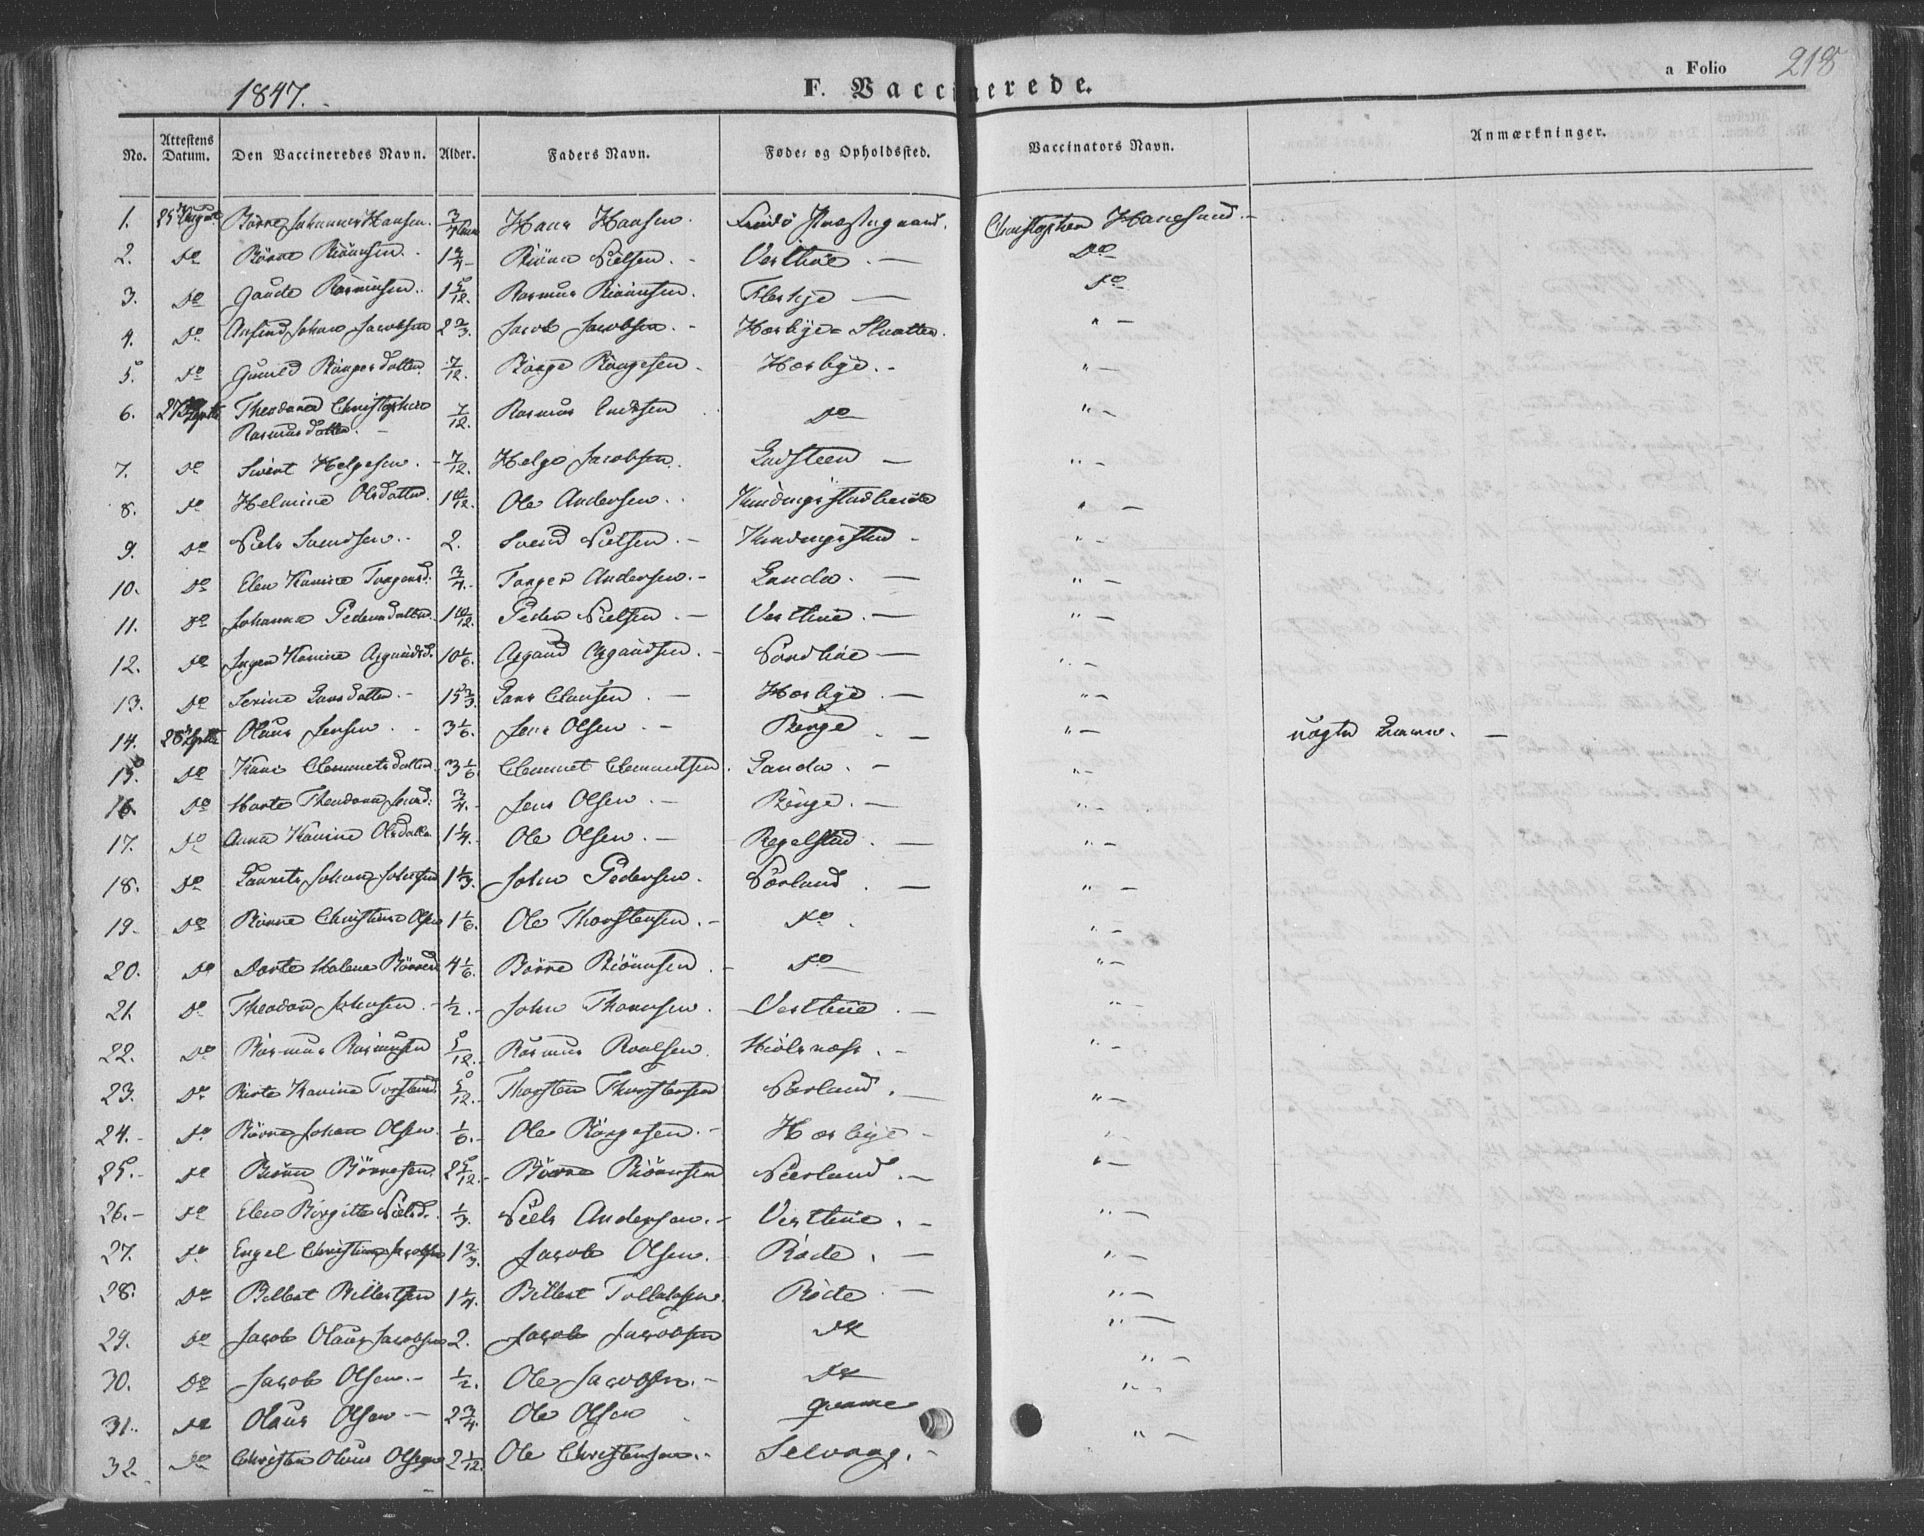 1847.
F. Vaccinerede.
a Folio 218
No. Attestens Datum. Den Vaccineredes Navn. Alder. Faders Navn. Føde- og Opholdssted. Vaccinators Navn. Anmærkninger.
1. 25 August Børre Johannes Hansen. 3/4 Hans Hansen. Christopher
2. Do Børre Biørnsen. 1 3/4 Biørne Nielsen. Vestbøe. Do
3. Do Gaute Rasmusen. 1 5/12. Rasmus Biørnsen. Do
4. Do Johan Jacobsen 2 2/3. Jacob Jacobsen. " —
5. Do Gunild Børgesdatter 7/12. Børge Børgesen. Hæsbye. " —
6. 27 Theodora Christophine 7/12. Rasmus Do " —
Rasmusdatter.
7. Do Sivert Helgesen. 7/12. Helge Jacobsen. Ladsteen " —
8. Do Helmine Olsdatter. 1 10/12. Ole Andersen. " —
9. Do Niels Svendsen. 2. Svend Nielsen. " —
10. Do Elen Karine Torgersd. 3/4. Torger Andersen. Landa. " —
11. Do Johanna Pedersdatter 1 10/12. Peder Nielsen. Vestbøe. " —
12. Do Inger Karine Asgautsd. 10 1/6. " —
13. Do Serine Larsdatter. 15 2/3. Lars Clausen. Hæsbye. " —
14. 28 Olaus Jensen. 3 1/6. Jens Olsen. Berge " —
15. Do Kari Clemmetsdatter 3 1/6 Clemmet Clemmetsen. Landa. " —
16. Do Marte Theodora Jensd. 3/4. Jens Olsen. Berge. " —
17. Do Anna Karine Olsdatter 1 1/4. Ole Olsen. Regelstad. " —
18. Do Laurits Johan Johnsen 1 1/3. John Pedersen. Nærland. " —
19. Do Børre Christian Olsen 1 1/6. Ole Thorstensen. Do. " —
20. Do Dorte Malene Børresd. 4 1/6. Børre Biørnsen Do " —
21. Do Theodor Johnsen. 1/2. John Thomsen. Vestbøe. " —
22. Do Rasmus Rasmusen 5/12. Rasmus Roalsen. " —
23. Do Berte Karine Torstensd. 5/12. Thorsten Thorstensen Nærland. " —
24. Do Børre Johan Olsen. 1/6. Ole Børgesen. Hæsbye
25. Do Biørn Børresen. 2 5/12. Børre Biørnsen Nærland. " —
26. Do Elen Birgitte Nielsd. 1/3. Niels Andersen. Vestbøe. " —
27. Do Engel Christine Jacobsen 1 2/3. Jacob Olsen. Bøde. " —
28. Do Billert Billertsen 1 1/4. Billert Tollaksen. Bøde " —
29. Do Jacob Olaus Jacobsen 2. Jacob Jacobsen Do " —
30. Do Jacob Olsen. 1/2. Ole Jacobsen. Do " —
31. Do Olaus Olsen 2 3/4. Ole Olsen " —
32. Do Christen Olaus Olsen 2 1/12. Ole Christensen. Selvaag. " —